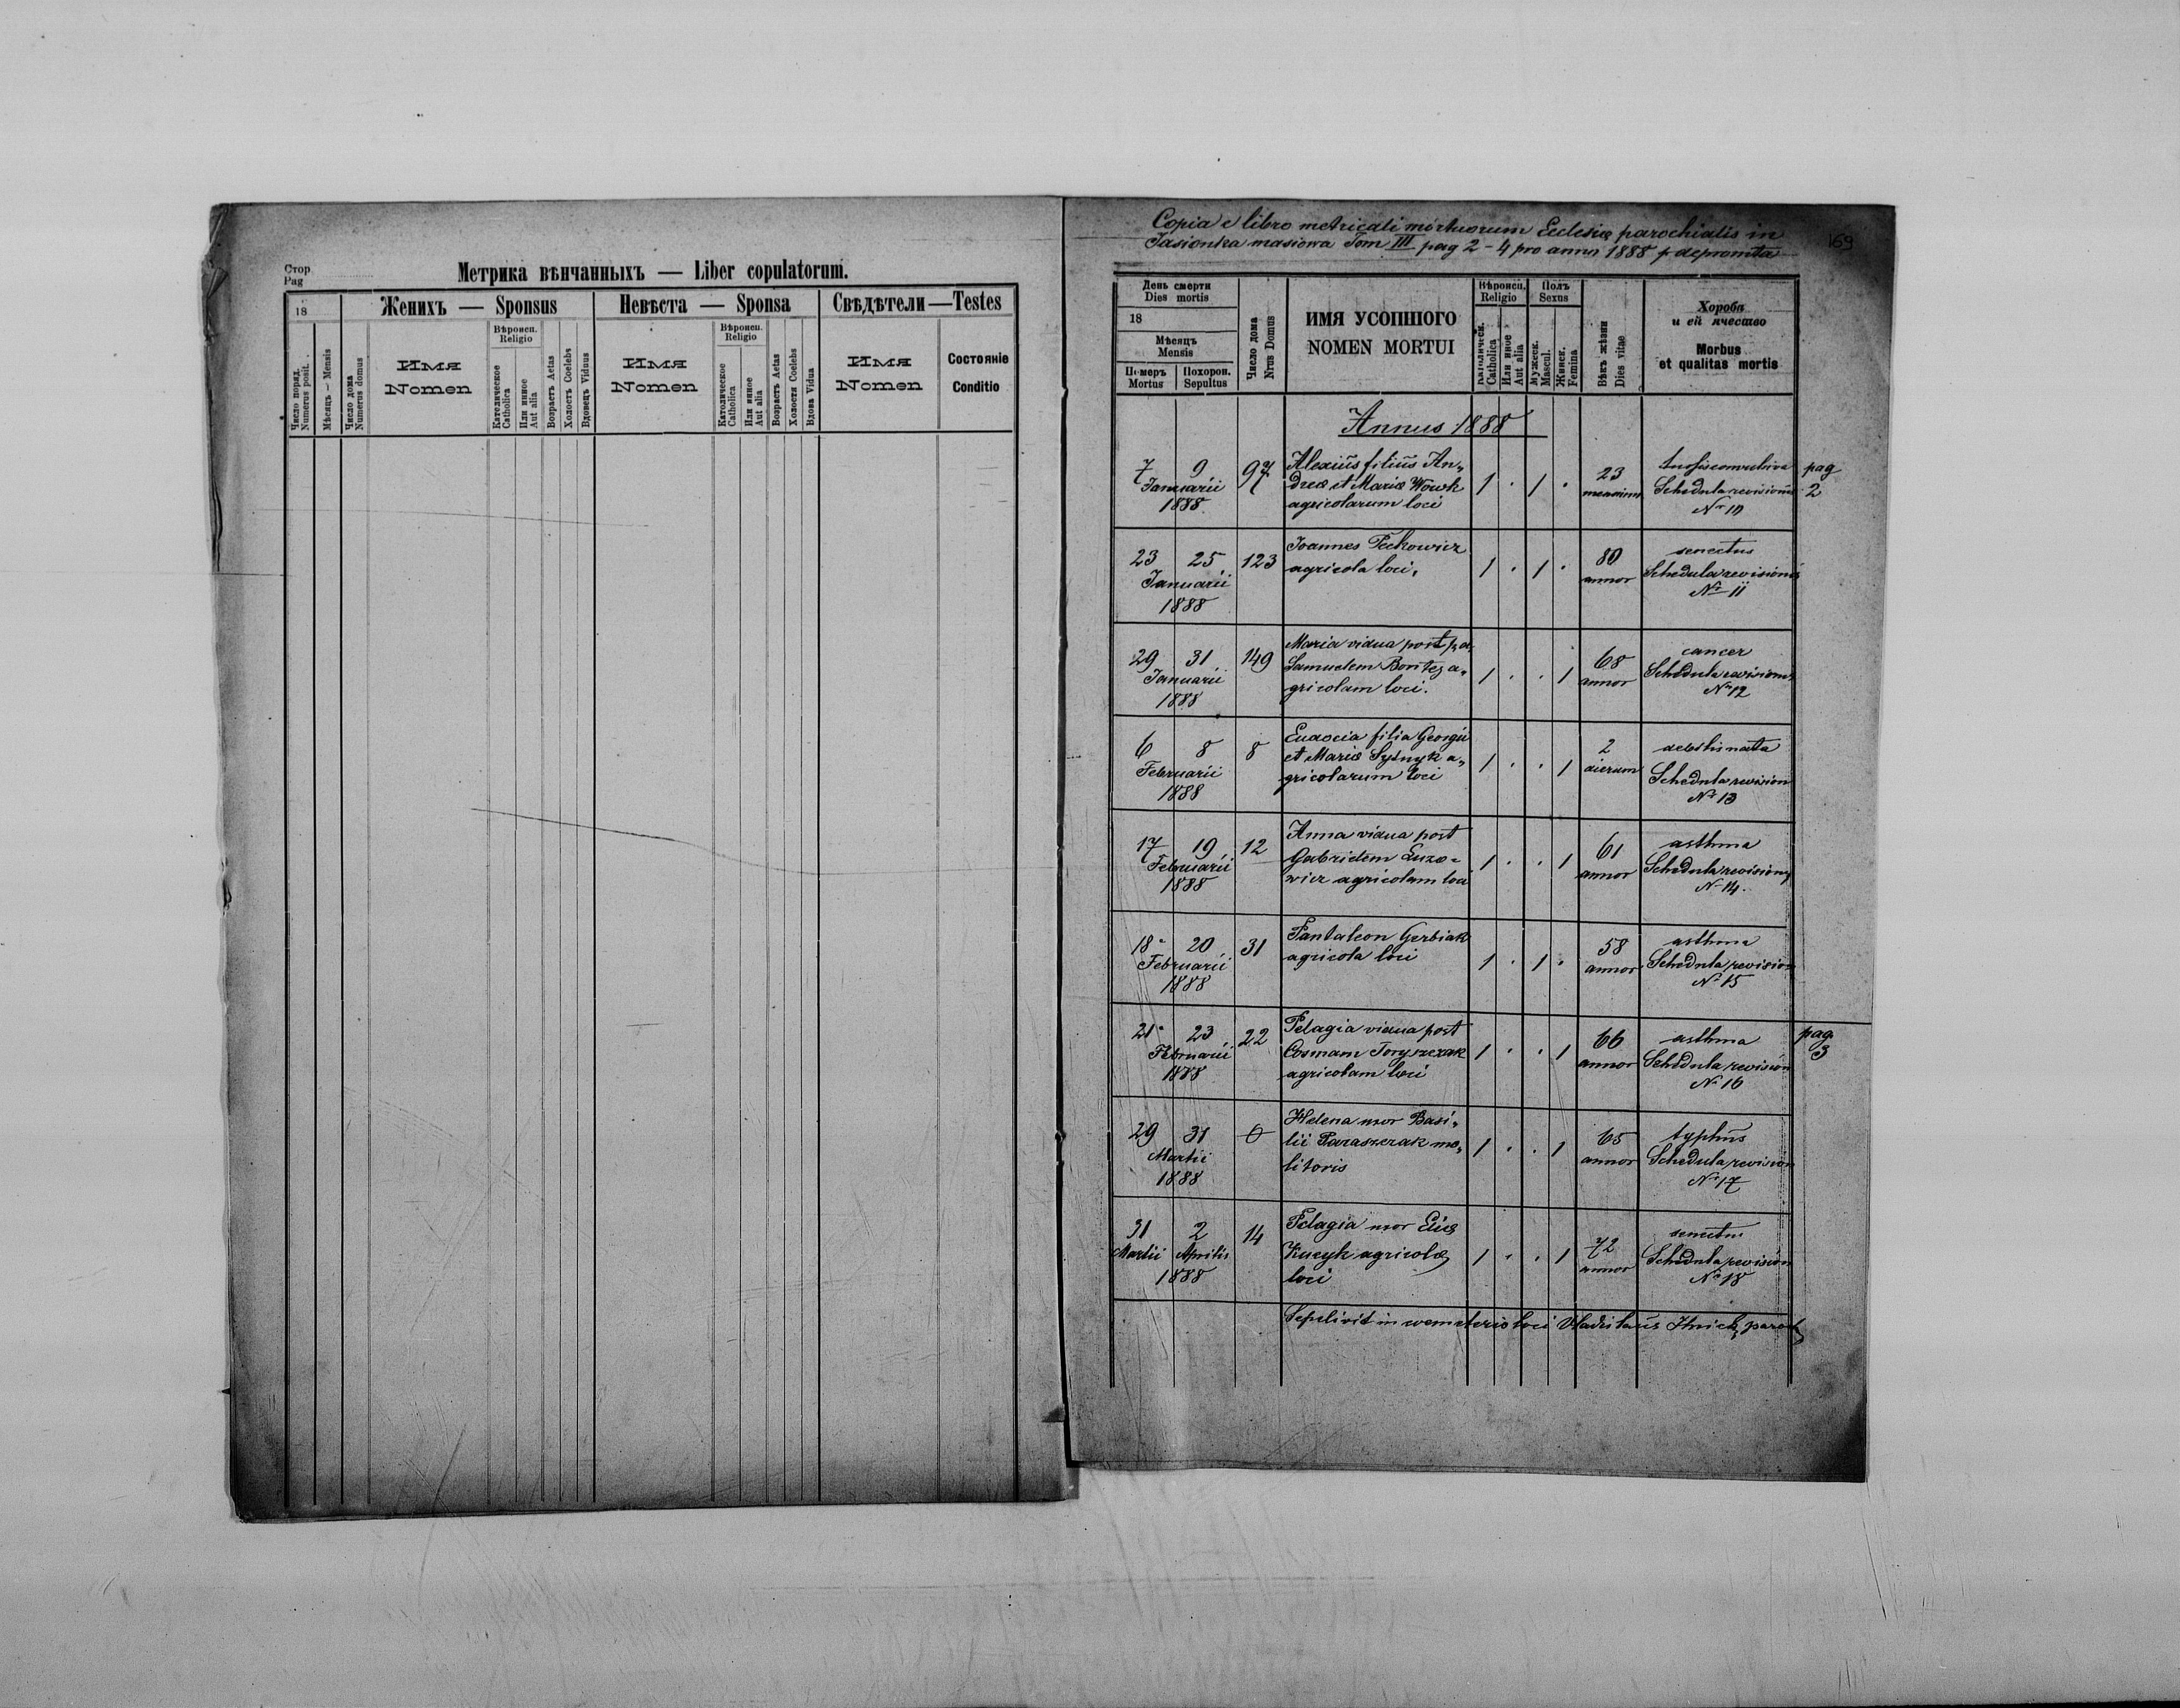 Стор
Pag
Метрика вѣнчанныхъ — Liber copulatorum.
18
Женихъ — Sponsus
Невѣста — Sponsa
Свѣдѣтели — Testes
Число поряд.
Numerus posit.
Мѣсяцъ — Mensis
Число дома
Numerus domus
Имя
Nomen
Вѣроисп.
Religio
Католическое
Catholica
Или инное
Aut alia
Возрастъ Aetas
Холостъ Coelebs
Вдовецъ Viduus
Имя
Nomen
Вѣроисп.
Religio
Католическое
Catholica
Или инное
Aut alia
Возрастъ Aetas
Холостя Coelebs
Вдова Vidua
Имя
Nomen
Состояніе
Conditio
Copia e libro metricali mortuorum Eclesiæ parochialis in
Jasionka masiowa Tom III pag 2 - 4 pro anno 1888 depromta
169
День смерти
Dies mortis
18
Мѣсяцъ
Mensis
Померъ
Mortus
Похорон.
Sepultus
Число дома
Nrus Domus
ИМЯ УСОПШОГО
NOMEN MORTUI
Вѣроисп.
Religio
Католическ.
Catholica
Или иное
Aut alia
Полъ
Sexus
Мужеск.
Mascul.
Женск.
Femina
Вѣкъ жѣзни
Dies vitae
Хороба
и ей ячество
Morbus
et qualitas mortis
Annus 1888
7 9 97 Alexius filius An„ 1 . 1 . 23 pag
Januarii dreæ et Mariæ Wowk Schedula revisionis 2
1888 agricolarum loci Nr 10
23 25 123 Joannes Peckowicz 1 . 1 . 80 senectus
Januarii agricola loci, annor Schedula revisionis
1888 Nr 11
29 31 149 Maria vidua post 1 . . 1 68 cancer
Januarii Samuelem a„ annor Schedula revisionis
1888 gricolam loci. Nr 12
6 8 8 Eudocia filia Georgii 1 . . 1 2 debilis nata
Februarii et Mariæ Sytnyk a„ dierum Schedula revision
1888 gricolarum loci Nr 13
17 19 12 Anna vidua post 1 . . 1 61 asthma
Februarii Gabrielem Luzo= annor Schedula revisionis
1888 wicz agricolam loci Nr 14.
18 20 31 Pantaleon Gerbiak 1 . 1 . 58 asthma
Februarii agricola loci annor Schedula revision
1888 Nr 15
21 23 22 Pelagia vidua post 1 . . 1 66 asthma pag.
Februarii Cosmam Toryszczak annor Schedula revision 3
1888 agricolam loci Nr 16
29 31 0 Helena uxor Basi„ 1 . . 1 65 typhus
Martii lii Paraszczak mo„ annor Schedula revision
1888 litoris Nr 17
31 2 14 Pelagia uxor Eliæ 1 . . 1 72 senectus
Martii Aprilis Kucyk agricolæ annor Schedula revision
1888 loci Nr 18
Sepelivit in coemeterio loci Vladislaus paroch